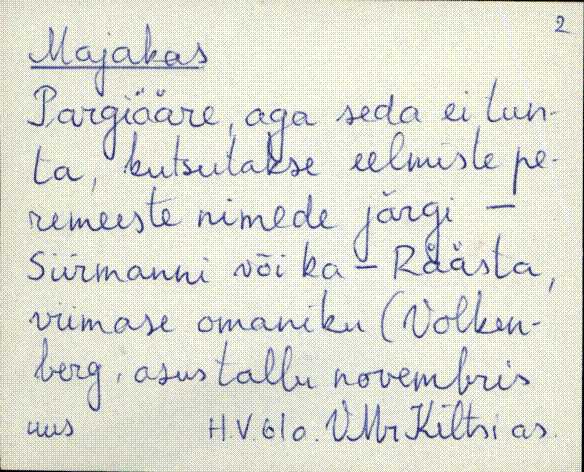 2
Majakas
Pargiääre, aga seda ei tun-
ta, kutsutakse eelmiste pe-
remeeste nimede järgi –
Siirmanni või ka – Räästa,
viimase omaniku (Volken-
berg, asus tallu novembris
uus H.V. 610. VMr Kiltsi as.